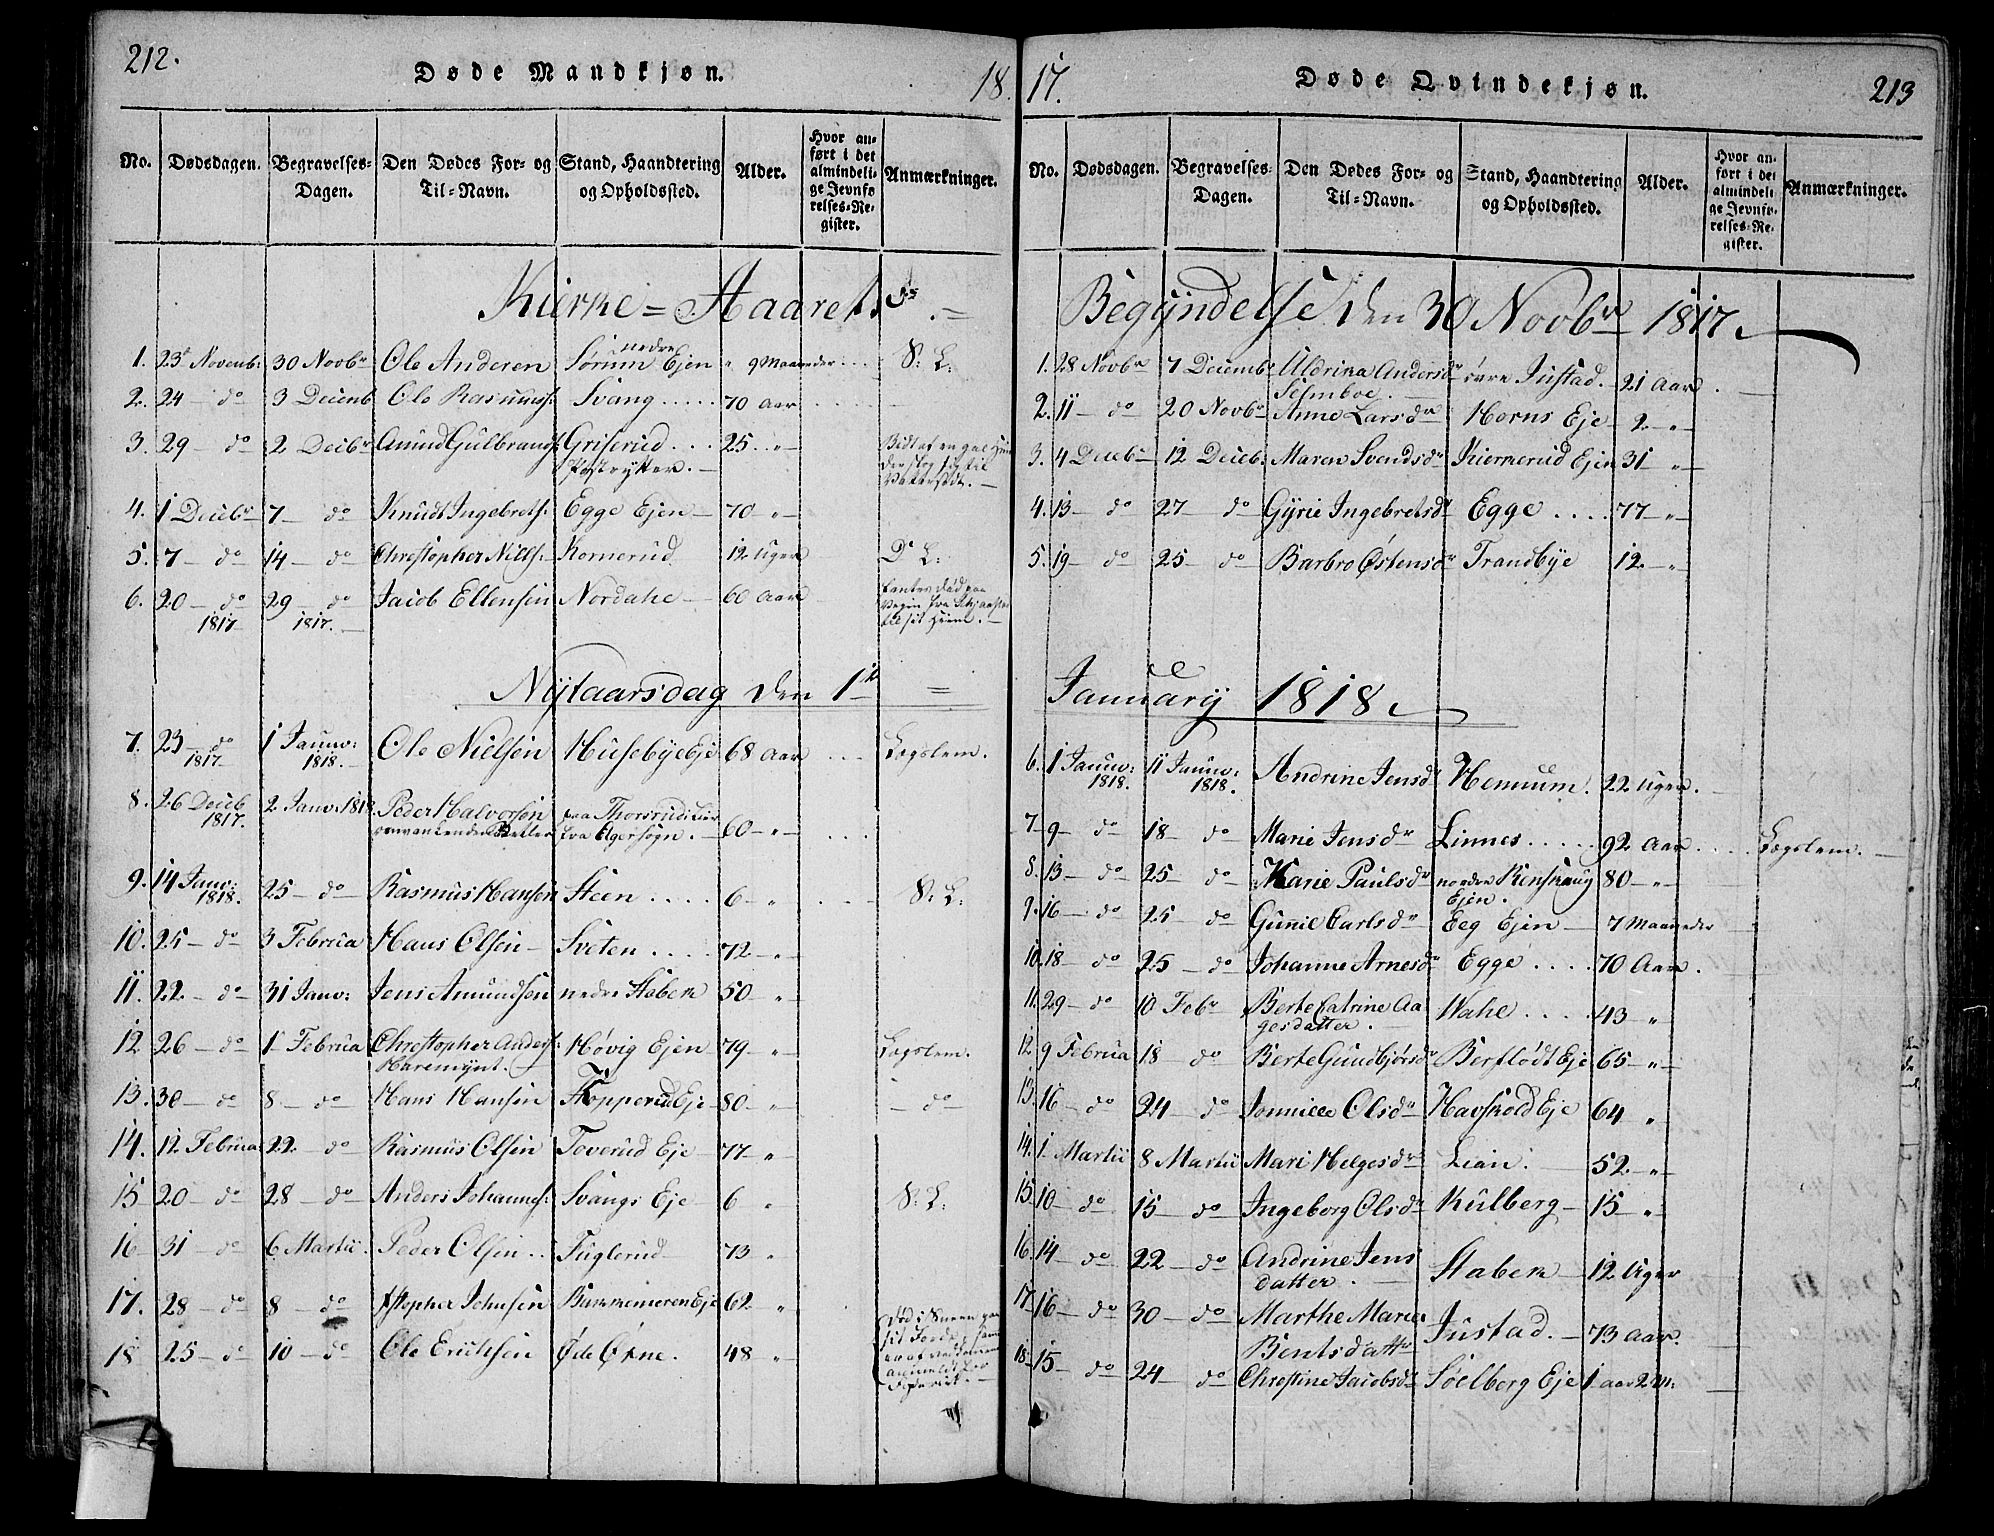 212.
Døde Mandkjøn.
18
No. Dødsdagen. Begravelses-Dagen. Den Dødes For- og Til-Navn. Stand, Haandtering og Opholdssted. Alder. Hvor anført i det almindelige Jevnførelses-Register. Anmærkninger.
Kierke = Aarets
1. 23 Novemb: 30 Novbr Ole Anderen Sørum nedre Ejen 9 Maaneder S: L:
2. 24 - do 3 Decemb Ole Rasmuss: Svang 70 Aar
3. 29 - do 2 Decbr Amund Gulbrands: Griserud 25 -"-
Postrytter.
4. 1 Decbr 7 - do Knudt Ingebrets: Egge Ejen 70 "
5. 7 - do 14 - do Christopher Nills: Kornerud 12 Uger D: L:
6. 20 - do 29 - do Jacob Ellensen Nordahe 60 Aar
1817 1817.
Nytaarsdag den 1te =
7. 23 - do 1 Janv: Ole Nielsen Husebye Eje 68 Aar Lægslem.
1817. 1818.
8. 26 Decb 2 Janv: 1818. Peder Halvorsen fra Thorsrud i Lier 60 -"-
1817. omvankende Betler fra Egersogn.
9. 14 Janv: 25 - do Rasmus Hansen Steen 6 - " S: L:
1818.
10. 25 - do 3 Februa Hans Olsen Sveten 72 -"-
11. 22 - do 31 Janv: Jens Amundsen nedre Stabek 50 "
12 26 - do 1 Februa Christopher Anders: Høvig Ejen 79 -"- Lægslem.
Haremynt.
13. 30 - do 8 - do Hans Hansen Stopperud Eje 80 " - do -
14. 12 Februa: 22 - do Rasmus Olsen Toverud Eje 77 "
15 20 - do 28 - do Anders Johannes: Svangs Eje 6 " S: L:
16 31 - do 6 Martii. Peder Olsen Fuglerud 73 "
17. 28 - do 8 - do Stopher Johnsen Eje 62 "
18 25 - do 10 - do Ole Erichsen Øde Økne. 48 "
17.
Døde Qvindekjøn.
213
No. Dødsdagen. Begravelses-Dagen. Den Dødes For- og Til-Navn. Stand, Haandtering og Opholdssted. Alder. Hvor anført i det almindelige Jevnførelses-Register. Anmærkninger.
Begyndelse den 30 Novbr 1817.
1. 28 Novbr 7 Decembr Uldrina Andersdr øvre Justad. 21 Aar
2. 11 - do 20 Novbr Anne Larsdr Horns Eje 2 -"-
3. 4 Decebr 12 Deceb: Maren Svendsdr Kierkerud Ejen 31 "
4. 13 - do 27 - do Gyrie Ingebretsdr Egge 77 "
5. 19 - do 25 - do Barbro Østensdr Trandbye 12 - "
January 1818
6. 1 Janv: 11 Janv: Andrine Jensdr Hennum. 22 Uger.
1818. 1818.
7 9 - do 18 - do Marie Jensdr Linnes 92 Aar Lægslem.
8. 13 - do 25 - do Marie Paulsdr nordre Renskaug 80 -"-
Ejen.
9. 16 - do 25 - do Gunnil Carlsdr Eeg Ejen 7 Maaneder
10. 18 - do 25 - do Johanne Arnesdr Egge 70 Aar.
11. 29 - do 10 Febr Berte Catrine Aagesdatter. Wahe 43 "
12 9 Februa 18 - do Berte Gundbjørsdr Berflødt Eje 65 -"-
13. 16 - do 24 - do Olsdr Havskold Eje 64 "
14. 1 Martii 8 Martii Mari Helgesdr Lian. 52 "
15 10 - do 15 - do Ingeborg Olsdr Kulberg 15 "
16. 14 - do 22 - do Andrine Jensdatter. Stabek 12 Uger
17 16 - do 30 - do Marthe Marie Bentsdattr Justad. 73 Aar.
18 15 - do 24 - do Christine Jacobsdr Sølberg Eje 1 aar 2 M: